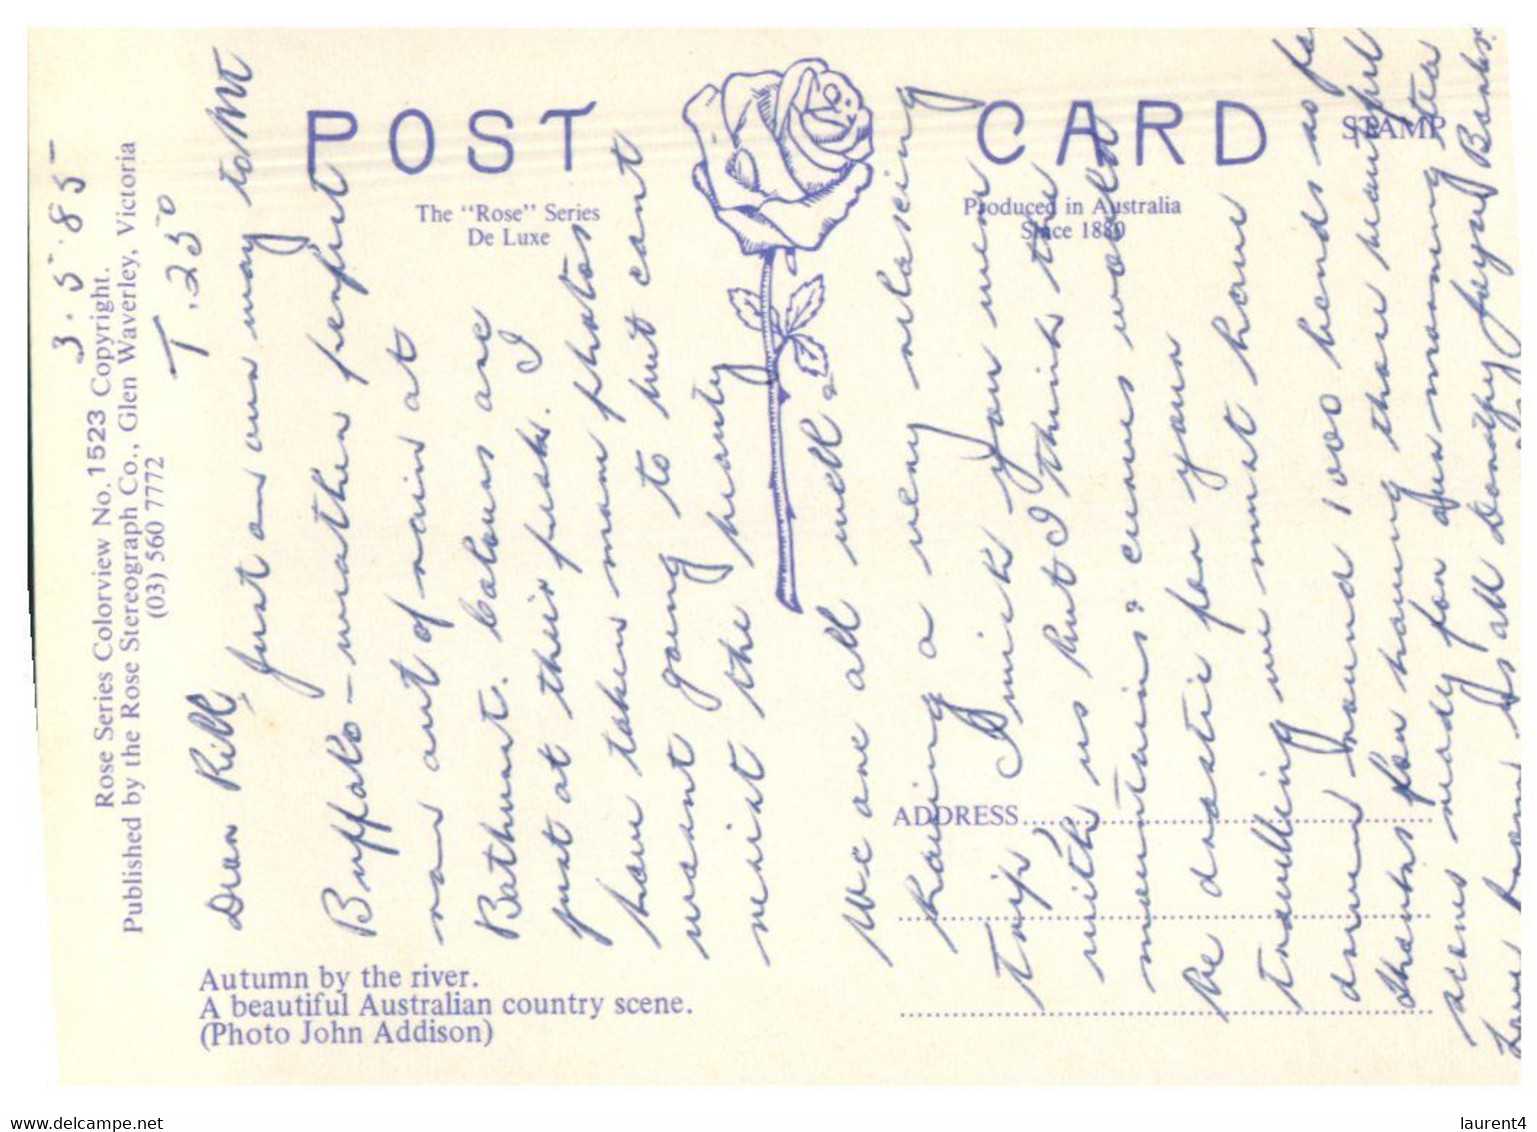 POST CARD
The "Rose" Series
De Luxe
Produced in Australia
Since 1880
STAMP
Rose Series Colorview No. 1523 Copyright.
Published by the Rose Stereograph Co., Glen Waverley, Victoria
(03) 560 7772
3.5.85
T.250
Dear Bill,
Just on our way to Mt
Buffalo - weather perfect
now out of rain at
Bathurst. Colours are
just at their peak. I
have taken many photos
want going to but cant
resist the beauty
We are all well &
having a very pleasing
trip. I wish you were
with us but I think the
mountains & curves would
be drastic for your
travelling we must have
done round 100 bends so far
thanks for having those beautiful
ready for our morning tea
Love from us all Dorothy Joyce Banks.
ADDRESS
Autumn by the river.
A beautiful Australian country scene.
(Photo John Addison)
www.delcampe.net
laurent4